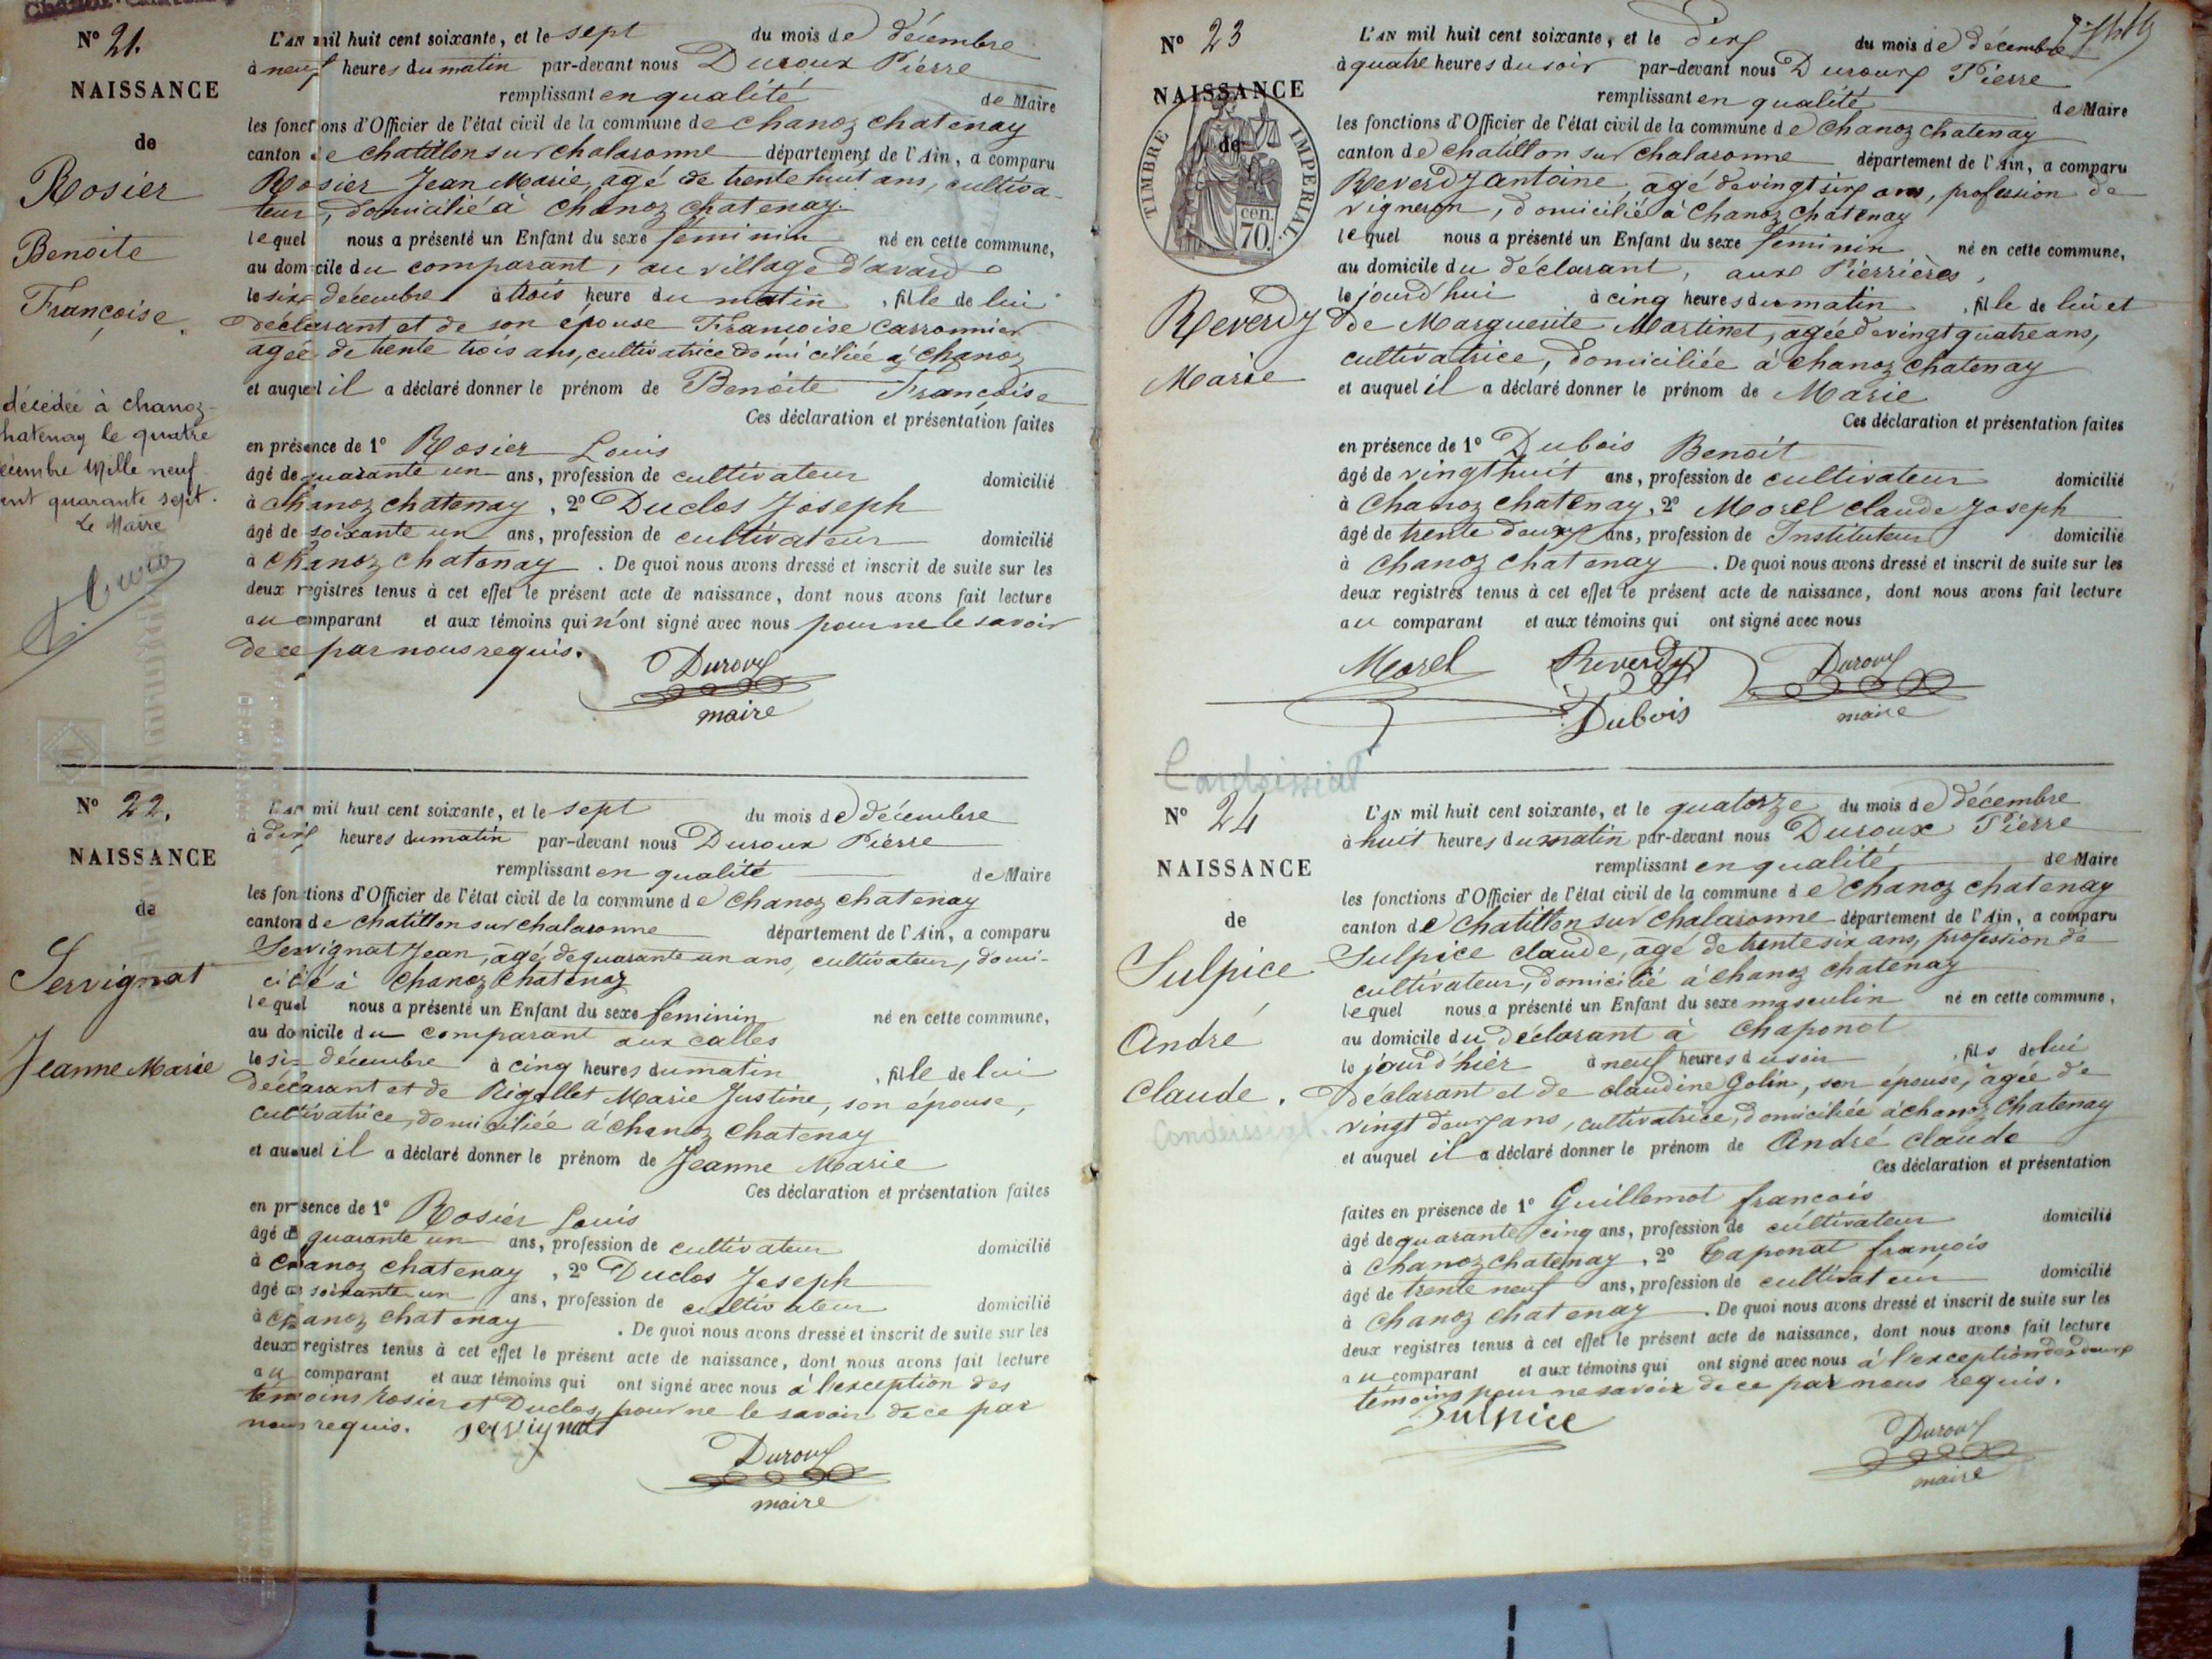 N° 21.
NAISSANCE
de
Rosier
Benoite
Françoise.
décédée à chanoz-
hatenay le quatre
écembre Mille neuf
ent quarante sept.
Le Maire
L'AN mil huit cent soixante, et le sept du mois de décembre
à neuf heures du matin par-devant nous Duroux Pierre
remplissant en qualité de Maire
les fonctions d'Officier de l'état civil de la commune de chanoz chatenay
canton de chatillon sur chalaronne département de l'Ain, a comparu
Rosier Jean Marie, agé de trente huit ans, cultiva-
teur, domicilié à chanoz chatenay.
lequel nous a présenté un Enfant du sexe feminin né en cette commune,
au domicile du comparant, au village d'avard
le six décembre à trois heure du matin, fille de lui
déclarant et de son épouse Françoise Carronnier
agée de trente trois ans, cultivatrice domiciliée à chanoz
et auquel il a déclaré donner le prénom de Benoite Françoise
Ces déclaration et présentation faites
en présence de 1° Rosier Louis
âgé de quarante un ans, profession de cultivateur domicilié
à chanoz chatenay, 2° Duclos Joseph
âgé de soixante un ans, profession de cultivateur domicilié
à chanoz chatenay. De quoi nous avons dressé et inscrit de suite sur les
deux registres tenus à cet effet le présent acte de naissance, dont nous avons fait lecture
au comparant et aux témoins qui n'ont signé avec nous pour ne le savoir
de ce par nous requis.
Duroux
maire
N° 22.
NAISSANCE
de
Servignat
Jeanne Marie
L'AN mil huit cent soixante, et le sept du mois de décembre
à dix heures du matin par-devant nous Duroux Pierre
remplissant en qualité de Maire
les fonctions d'Officier de l'état civil de la commune de chanoz chatenay
canton de chatillon sur chalaronne département de l'Ain, a comparu
Servignat Jean, âgé de quarante un ans, cultivateur, domi-
cilié à chanoz chatenay
lequel nous a présenté un Enfant du sexe feminin né en cette commune,
au domicile du comparant aux calles
le six décembre à cinq heures du matin, fille de lui
déclarant et de Rigollet Marie Justine, son épouse,
cultivatrice, domiciliée à chanoz chatenay
et auquel il a déclaré donner le prénom de Jeanne Marie
Ces déclaration et présentation faites
en présence de 1° Rosier Louis
âgé de quarante un ans, profession de cultivateur domicilié
à chanoz chatenay, 2° Duclos Joseph
âgé de soixante un ans, profession de cultivateur domicilié
à chanoz chatenay. De quoi nous avons dressé et inscrit de suite sur les
deux registres tenus à cet effet le présent acte de naissance, dont nous avons fait lecture
au comparant et aux témoins qui ont signé avec nous à l'exception des
témoins Rosier et Duclos, pour ne le savoir de ce par
nous requis. servignat
Duroux
maire
N° 23
NAISSANCE
de
TIMBRE IMPERIAL
70 cen.
Reverdy
Marie
L'AN mil huit cent soixante, et le dix du mois de décembre
à quatre heures du soir par-devant nous Duroux Pierre
remplissant en qualité de Maire
les fonctions d'Officier de l'état civil de la commune de chanoz chatenay
canton de chatillon sur chalaronne département de l'Ain, a comparu
Reverdy antoine, âgé de vingt six ans, profession de
vigneron, domicilié à chanoz chatenay
lequel nous a présenté un Enfant du sexe féminin né en cette commune,
au domicile du déclarant, aux Pierrières,
le jourd'hui à cinq heures du matin, fille de lui et
de Marguerite Martinet, agée de vingt quatre ans,
cultivatrice, domiciliée à chanoz chatenay
et auquel il a déclaré donner le prénom de Marie
Ces déclaration et présentation faites
en présence de 1° Dubois Benoit
âgé de vingt huit ans, profession de cultivateur domicilié
à chanoz chatenay, 2° Morel claude Joseph
âgé de trente deux ans, profession de Instituteur domicilié
à chanoz chatenay. De quoi nous avons dressé et inscrit de suite sur les
deux registres tenus à cet effet le présent acte de naissance, dont nous avons fait lecture
au comparant et aux témoins qui ont signé avec nous
Morel Reverdy Duroux
Dubois maire
N° 24
NAISSANCE
de
Sulpice
André
claude.
L'AN mil huit cent soixante, et le quatorze du mois de décembre
à huit heures du matin par-devant nous Duroux Pierre
remplissant en qualité de Maire
les fonctions d'Officier de l'état civil de la commune de chanoz chatenay
canton de chatillon sur chalaronne département de l'Ain, a comparu
Sulpice claude, âgé de trente six ans, profession de
cultivateur, domicilié à chanoz chatenay
lequel nous a présenté un Enfant du sexe masculin né en cette commune,
au domicile du déclarant à chaponot
le jourd'hier à neuf heures du soir, fils de lui
déclarant et de claudine Golin, son épouse, âgée de
vingt deux ans, cultivatrice, domiciliée à chanoz chatenay
et auquel il a déclaré donner le prénom de André claude
Ces déclaration et présentation
faites en présence de 1° Guillemot françois
âgé de quarante cinq ans, profession de cultivateur domicilié
à chanoz chatenay, 2° Taponat françois
âgé de trente neuf ans, profession de cultivateur domicilié
à chanoz chatenay. De quoi nous avons dressé et inscrit de suite sur les
deux registres tenus à cet effet le présent acte de naissance, dont nous avons fait lecture
au comparant et aux témoins qui ont signé avec nous à l'exception des deux
témoins pour ne savoir de ce par nous requis.
Sulpice
Duroux
maire